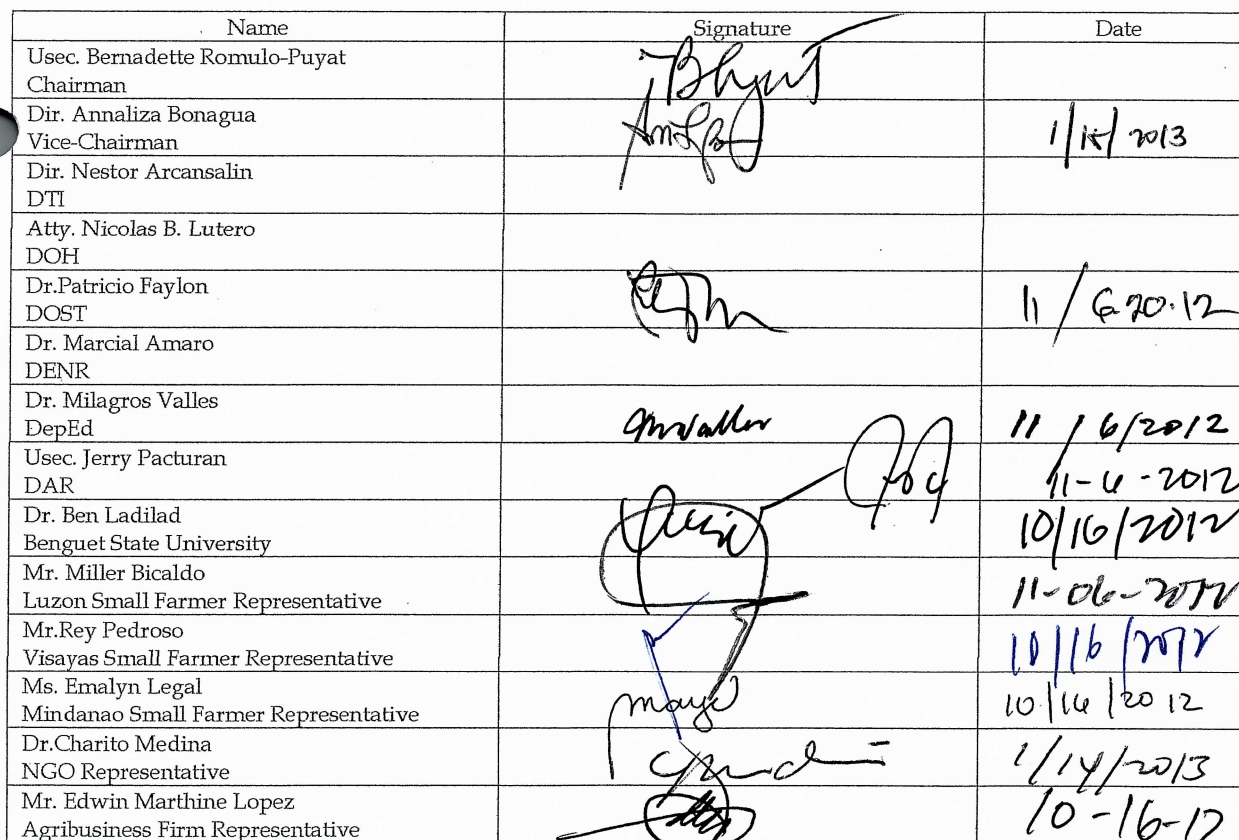 Name Signature Date
Usec. Bernadette Romulo-Puyat
Chairman
Dir. Annaliza Bonagua
Vice-Chairman 1/15/2013
Dir. Nestor Arcansalin
DTI
Atty. Nicolas B. Lutero
DOH
Dr.Patricio Faylon
DOST 11/6.20.12
Dr. Marcial Amaro
DENR
Dr. Milagros Valles
DepEd 11/6/2012
Usec. Jerry Pacturan
DAR 11-6-2012
Dr. Ben Ladilad
Benguet State University 10/16/2012
Mr. Miller Bicaldo
Luzon Small Farmer Representative 11-06-2012
Mr.Rey Pedroso
Visayas Small Farmer Representative 10/16/2012
Ms. Emalyn Legal
Mindanao Small Farmer Representative 10/16/2012
Dr.Charito Medina
NGO Representative 1/14/2013
Mr. Edwin Marthine Lopez
Agribusiness Firm Representative 10-16-12